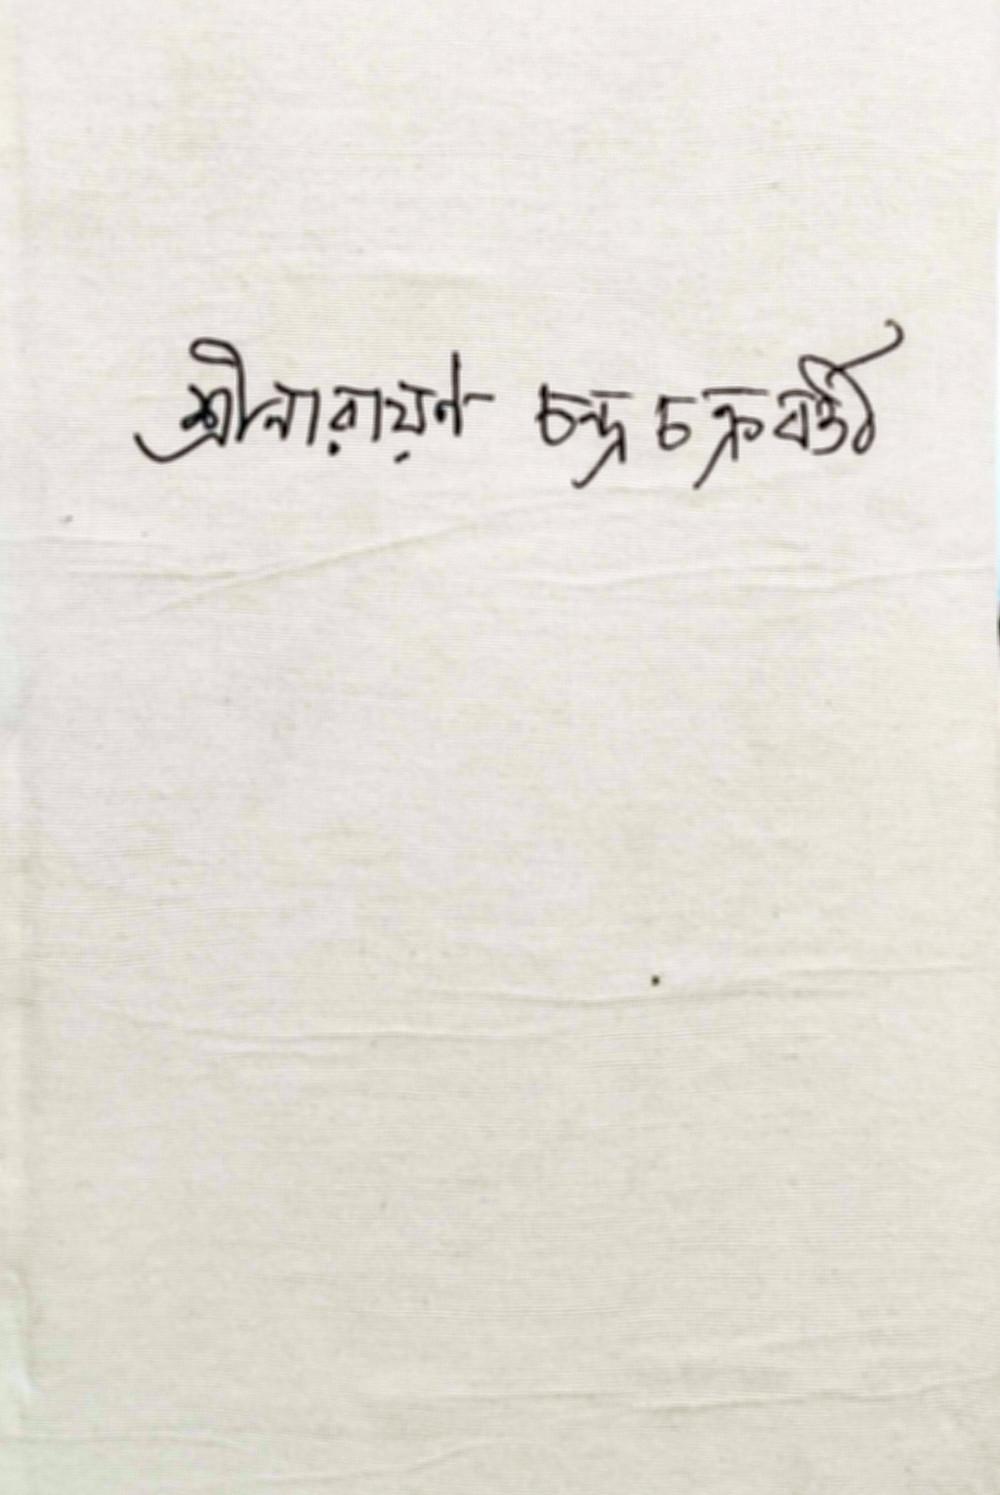 শ্রীনারায়ণ চন্দ্র চক্রবর্ত্তী